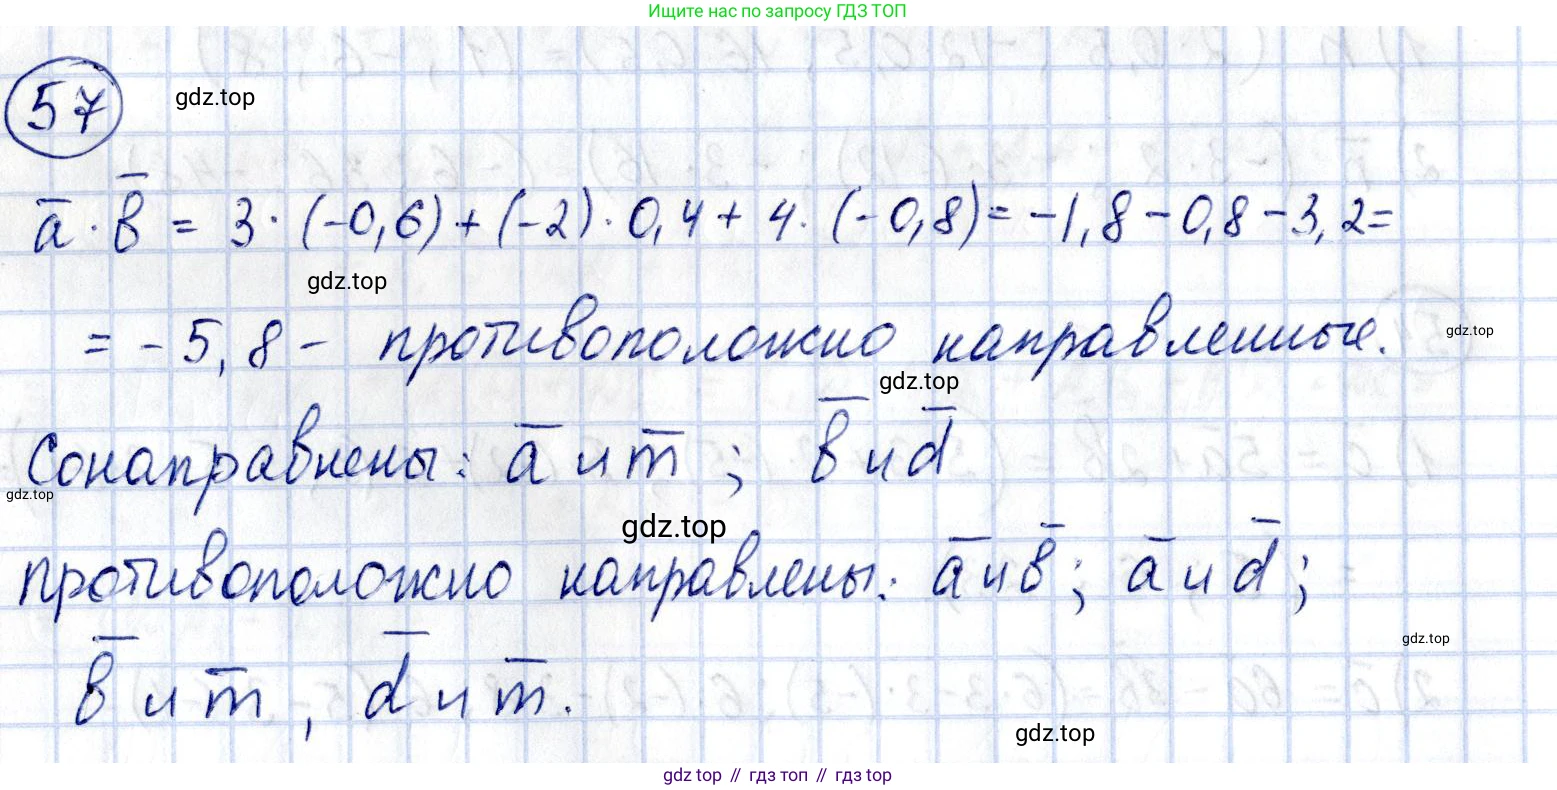 Ищите нас по запросу ГДЗ ТОП
57
gdz.top
a̅ · b̅ = 3 · (-0,6) + (-2) · 0,4 + 4 · (-0,8) = -1,8 - 0,8 - 3,2 =
gdz.top
= -5,8 - противоположно направленные.
gdz.top
gdz.top
Сонаправлены: a̅ и m̅ ; b̅ и d̅
gdz.top
gdz.top
противоположно направлены: a̅ и b̅ ; a̅ и d̅ ;
gdz.top
b̅ и m̅ , d̅ и m̅ .
gdz.top
gdz top // гдз топ // гдз top